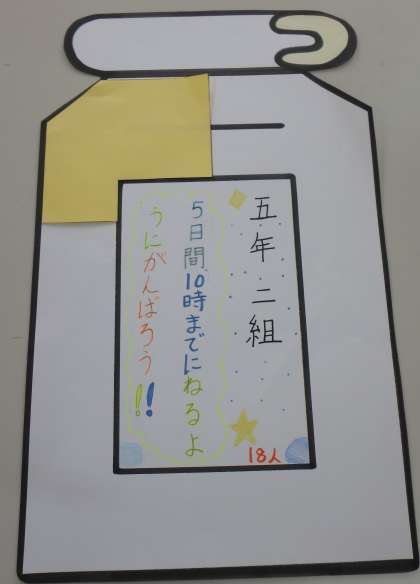 五年二組
5日間10時までにねるよ
うにがんばろう!!
18人